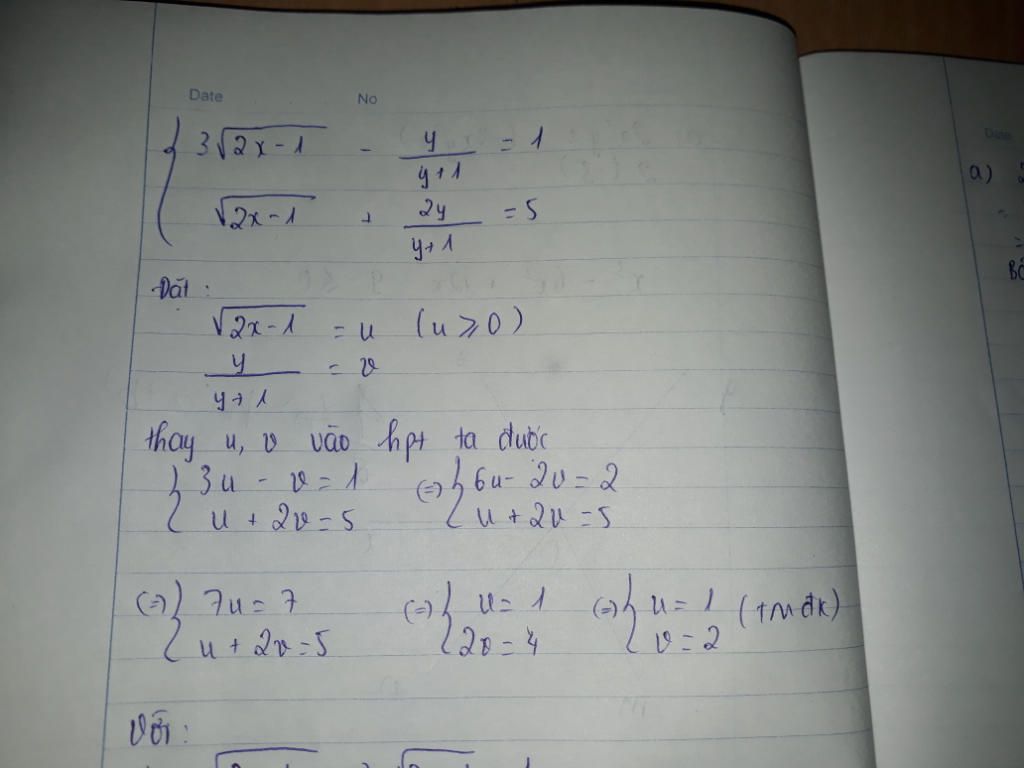 Date No
{ 3√(2x-1) - y/(y+1) = 1
√(2x-1) + 2y/(y+1) = 5
Đặt :
√(2x-1) = u (u ⩾ 0)
y/(y+1) = v
thay u, v vào hpt ta được
{ 3u - v = 1 (=) { 6u - 2v = 2
u + 2v = 5 u + 2v = 5
(=) { 7u = 7 (=) { u = 1 (=) { u = 1 (tmđk)
u + 2v = 5 2v = 4 v = 2
Với :
Date
a)